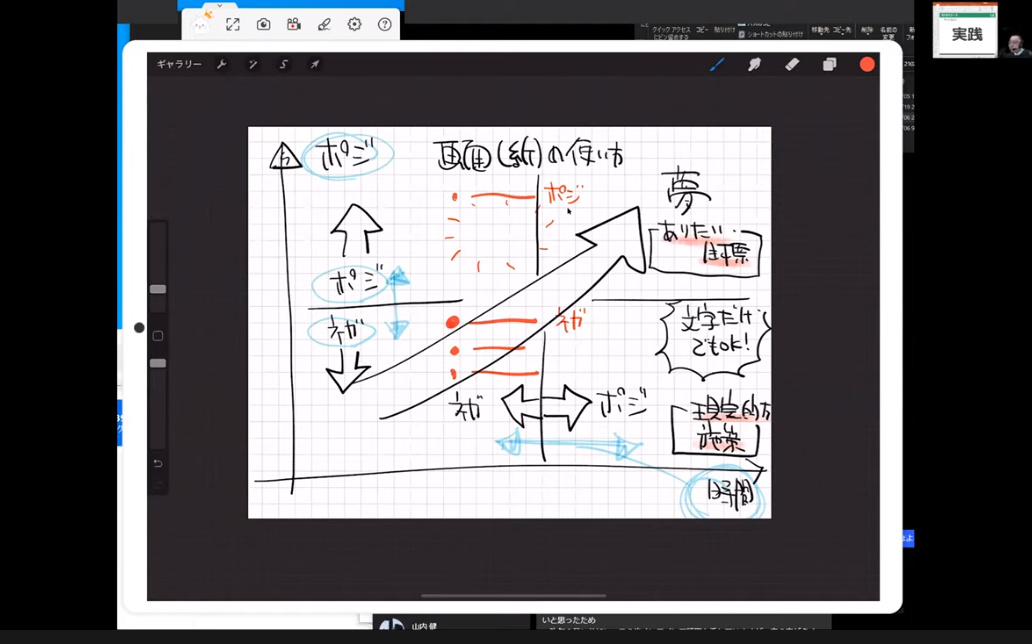 クイック アクセス
にピン留めする
コピー
貼り付け
ショートカットの貼り付け
移動先
コピー先
削除
名前の
変更
実践
ギャラリー
ポジ
画面(紙)の使い方
夢
ポジ
ありたい
目標
ポジ
ネガ
ネガ
文字だけ
でもOK!
ネガ
ポジ
現実的な
施策
時間
山内 健
いと思ったため